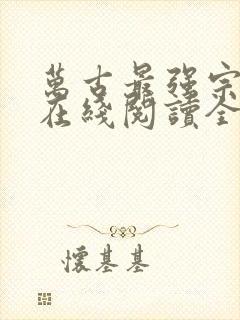 萬古最强宗
在綫閱讀全
懷基基